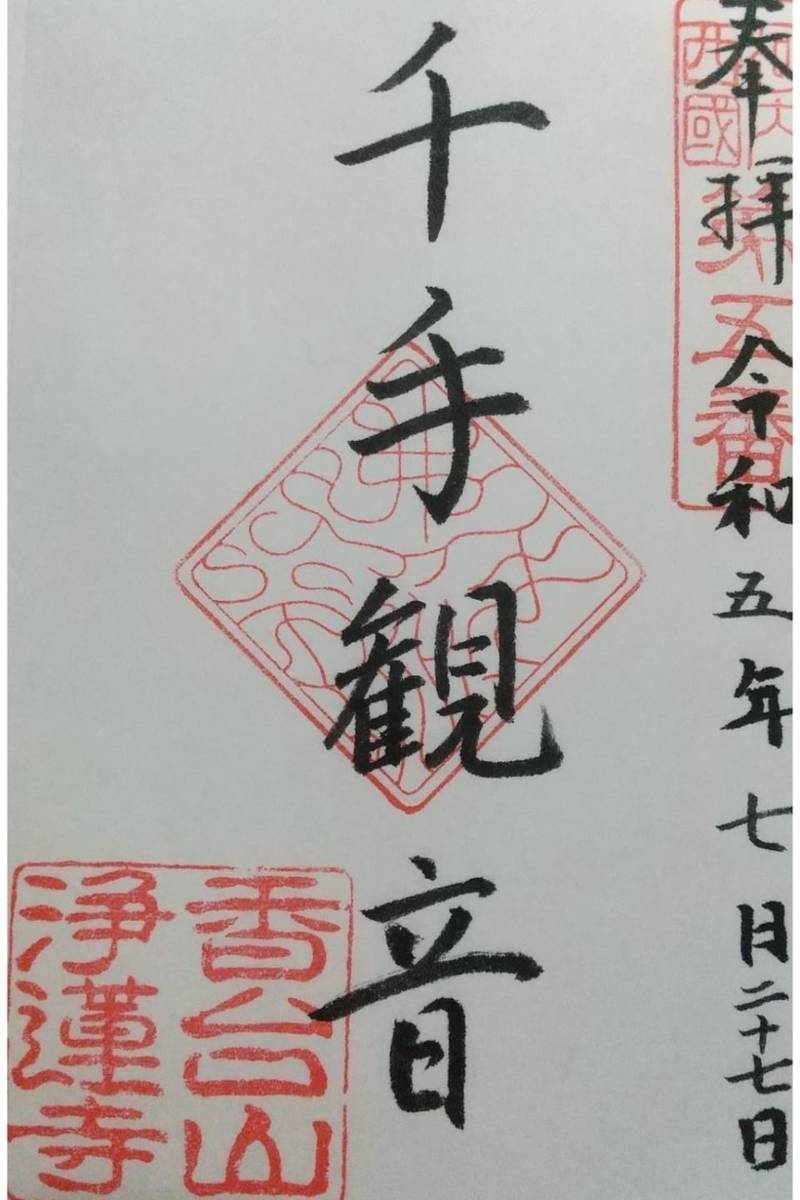 奉拝 令和五年七月二十七日
西國
第五番
千手観音
香台山
浄蓮寺